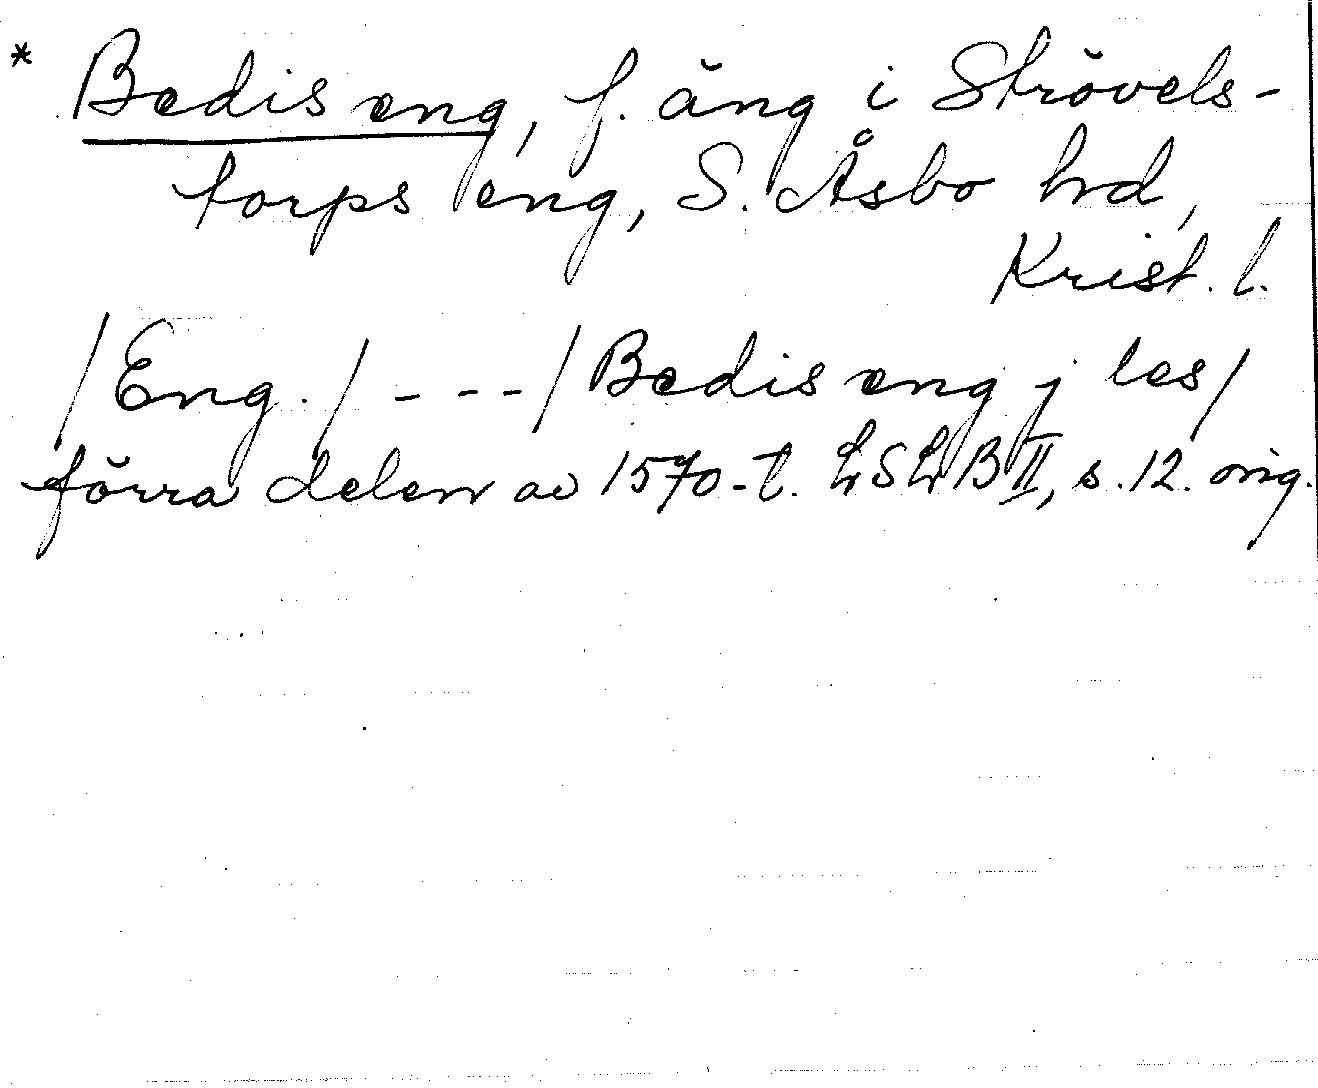 * Bedis eng, f. äng i Strövels-
torps eng, S. Åsbo hd,
Krist. l.
/Eng./ - - - / Bedis eng j les/
förra delen av 1570-t. LSLB II, s. 12. orig.